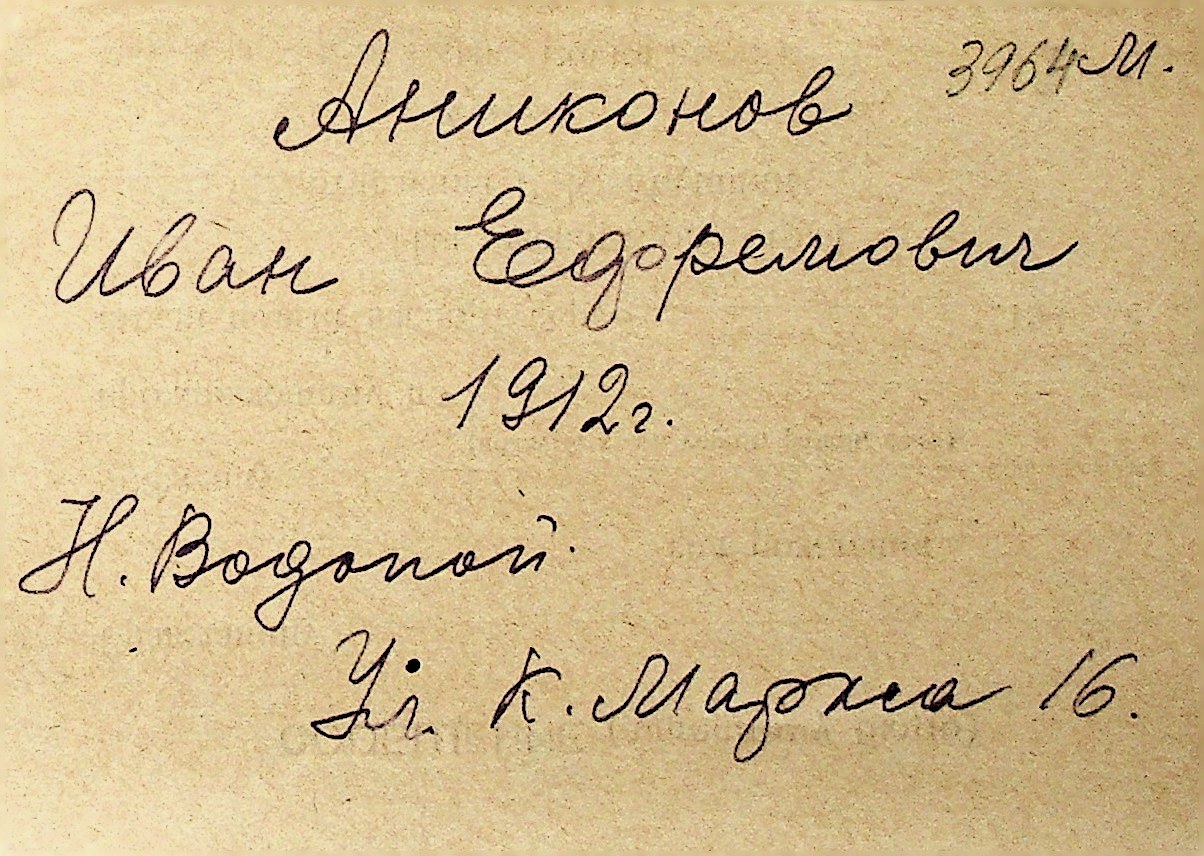 3964м.
Аниконов
Иван Ефремович
1912г.
Н. Водопой.
Ул. К. Маркса 16.